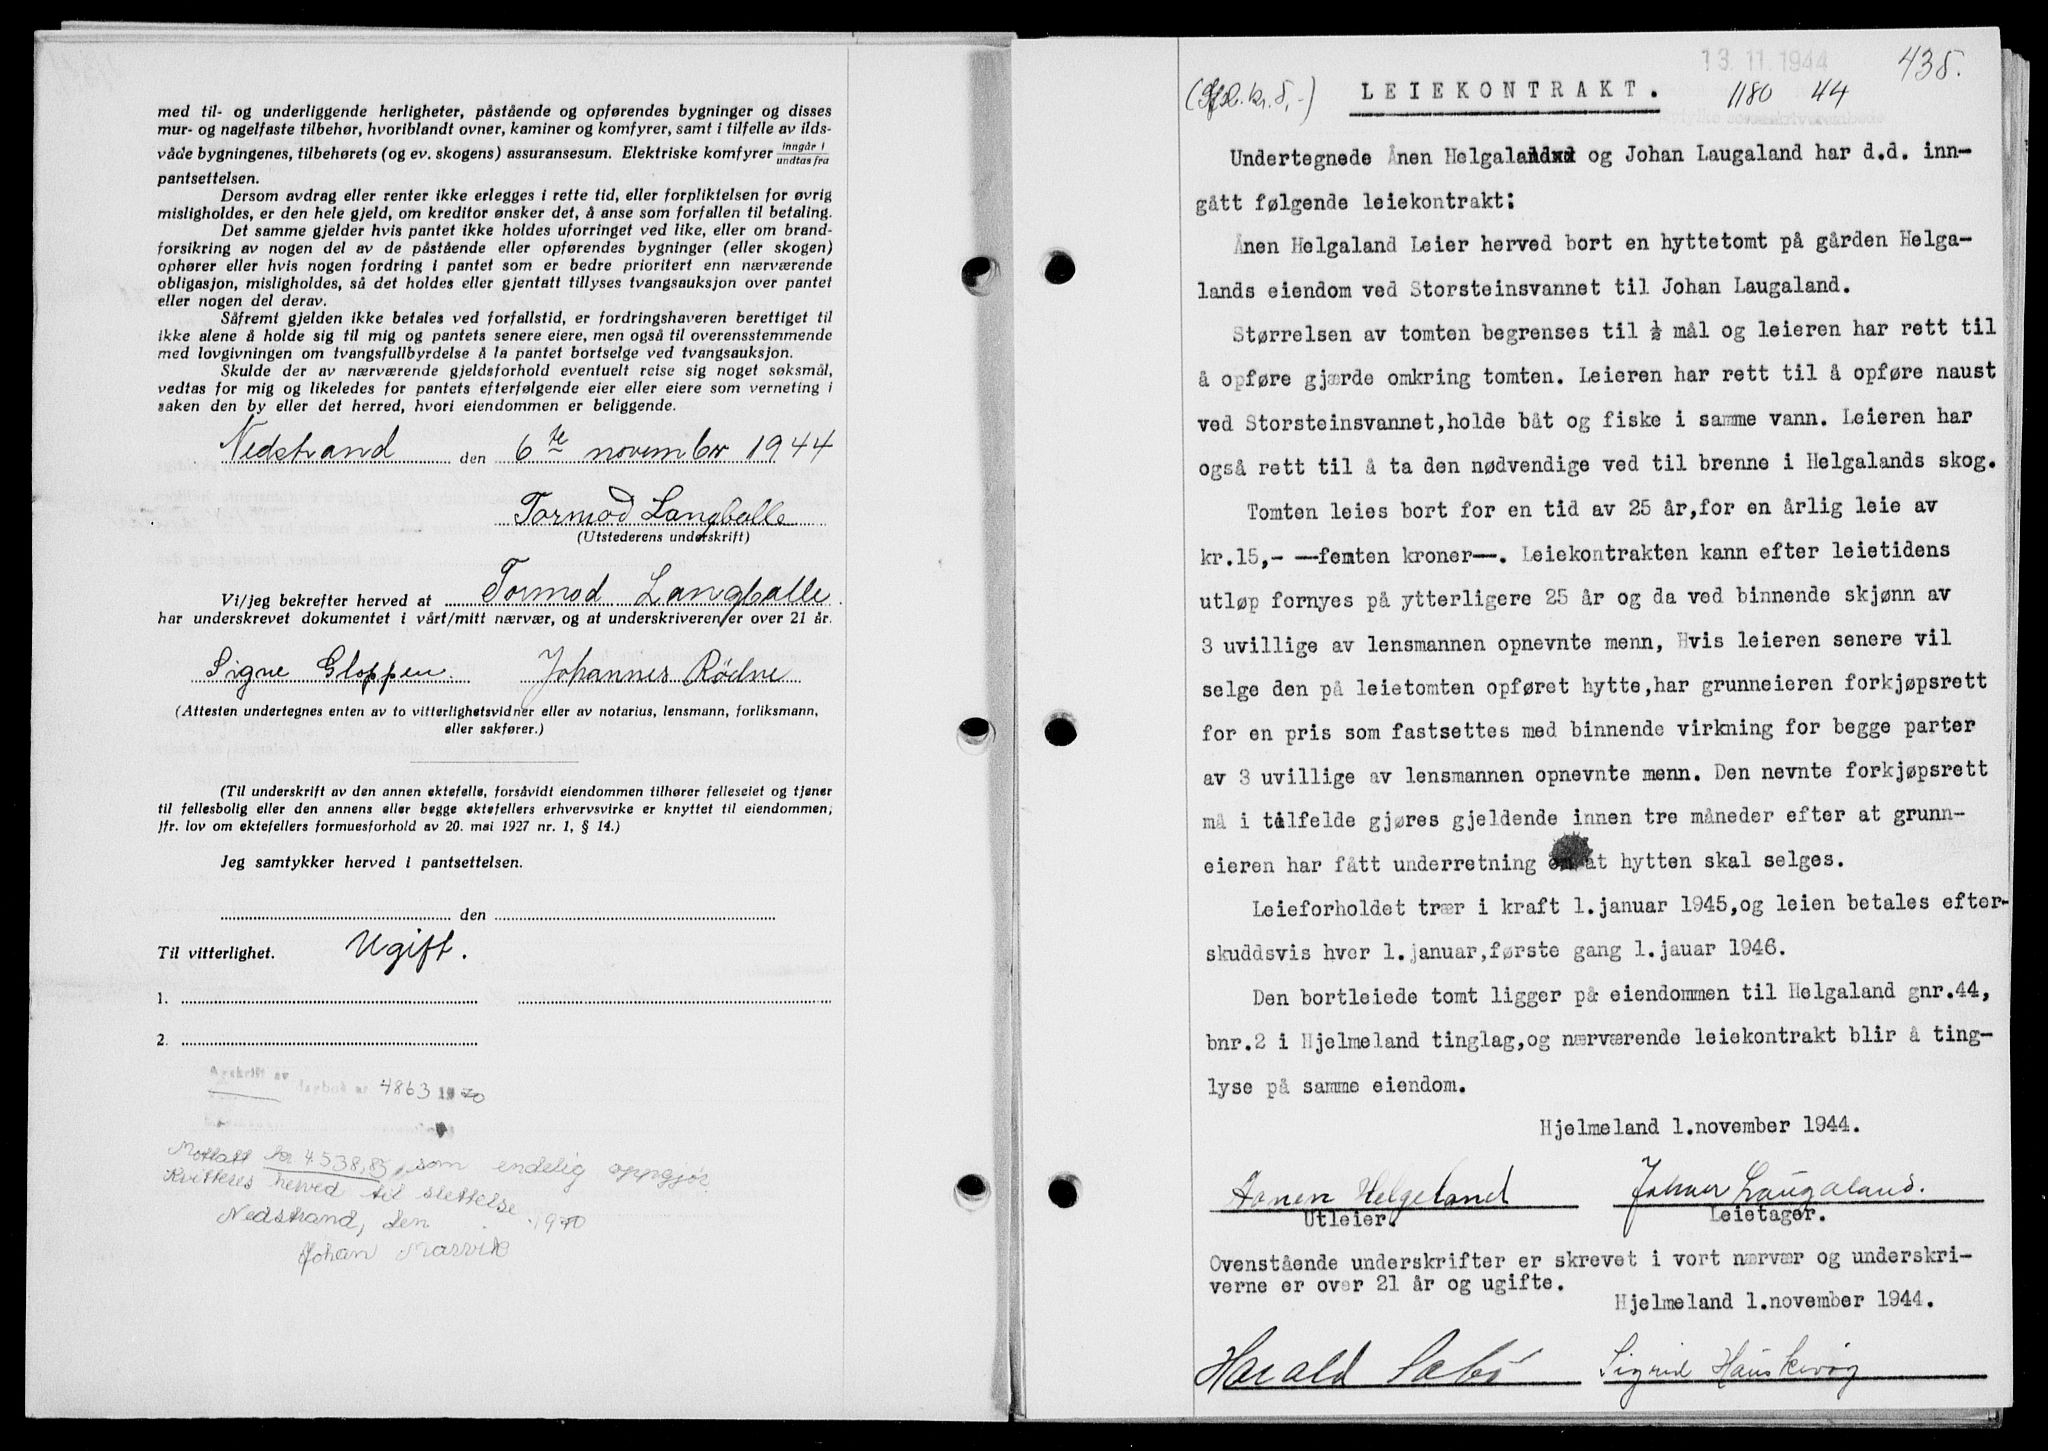 med til- og underliggende herligheter, påstående og opførendes bygninger og disses
mur- og nagelfaste tilbehør, hvoriblandt ovner, kaminer og komfyrer, samt i tilfelle av ilds-
våde bygningenes, tilbehørets (og ev. skogens) assuransesum. Elektriske komfyrer inngår i / undtas fra
pantsettelsen.
Dersom avdrag eller renter ikke erlegges i rette tid, eller forpliktelsen for øvrig
misligholdes, er den hele gjeld, om kreditor ønsker det, å anse som forfallen til betaling.
Det samme gjelder hvis pantet ikke holdes uforringet ved like, eller om brand-
forsikring av nogen del av de påstående eller opførendes bygninger (eller skogen)
ophører eller hvis nogen fordring i pantet som er bedre prioritert enn nærværende
obligasjon, misligholdes, så det holdes eller gjentatt tillyses tvangsauksjon over pantet
eller nogen del derav.
Såfremt gjelden ikke betales ved forfallstid, er fordringshaveren berettiget til
ikke alene å holde sig til mig og pantets senere eiere, men også til overensstemmende
med lovgivningen om tvangsfullbyrdelse å la pantet bortselge ved tvangsauksjon.
Skulde der av nærværende gjeldsforhold eventuelt reise sig noget søksmål,
vedtas for mig og likeledes for pantets efterfølgende eier eller eiere som verneting i
saken den by eller det herred, hvori eiendommen er beliggende.
Nedstrand den 6te november 1944
Tormod Langballe
(Utstederens underskrift)
Vi/jeg bekrefter herved at Tormod Langballe
har underskrevet dokumentet i vårt/mitt nærvær, og at underskriveren/er over 21 år.
Signe Gloppen. Johannes Rødne
(Attesten undertegnes enten av to vitterlighetsvidner eller av notarius, lensmann, forliksmann,
eller sakfører.)
(Til underskrift av den annen ektefelle, forsåvidt eiendommen tilhører felleseiet og tjener
til fellesbolig eller den annens eller begge ektefellers erhvervsvirke er knyttet til eiendommen,
jfr. lov om ektefellers formuesforhold av 20. mai 1927 nr. 1, § 14.)
Jeg samtykker herved i pantsettelsen.
den
Til vitterlighet. Ugift.
1.
2.
Avskrift av dagbod nr 4863 1970
Mottatt kr 4.538,85, som endelig oppgjør
Kvitteres herved til slettelse
Nedstrand, den 1970
Johan Marvik
438.
13.11.1944
LEIEKONTRAKT. 1180 44
Undertegnede Ånen Helgaland og Johan Laugaland har d.d. inn-
gått følgende leiekontrakt:
Ånen Helgaland Leier herved bort en hyttetomt på gården Helga-
lands eiendom ved Storsteinsvannet til Johan Laugaland.
Størrelsen av tomten begrenses til ½ mål og leieren har rett til
å opføre gjærde omkring tomten. Leieren har rett til å opføre naust
ved Storsteinsvannet,holde båt og fiske i samme vann. Leieren har
også rett til å ta den nødvendige ved til brenne i Helgalands skog.
Tomten leies bort for en tid av 25 år,for en årlig leie av
kr.15,- —femten kroner—. Leiekontrakten kann efter leietidens
utløp fornyes på ytterligere 25 år og da ved binnende skjønn av
3 uvillige av lensmannen opnevnte menn, Hvis leieren senere vil
selge den på leietomten opføret hytte,har grunneieren forkjøpsrett
for en pris som fastsettes med binnende virkning for begge parter
av 3 uvillige av lensmannen opnevnte menn. Den nevnte forkjøpsrett
må i tilfelde gjøres gjeldende innen tre måneder efter at grunn-
eieren har fått underretning om at hytten skal selges.
Leieforholdet trær i kraft 1.januar 1945,og leien betales efter-
skuddsvis hver 1.januar,første gang 1.jauar 1946.
Den bortleiede tomt ligger på eiendommen til Helgaland gnr.44,
bnr.2 i Hjelmeland tinglag,og nærværende leiekontrakt blir å ting-
lyse på samme eiendom.
Hjelmeland 1.november 1944.
Aanen Helgeland Johan Laugaland.
Utleier. Leietager.
Ovenstående underskrifter er skrevet i vort nærvær og underskri-
verne er over 21 år og ugifte.
Hjelmeland 1.november 1944.
Harald Sæbø Sigrid Hauskevåg